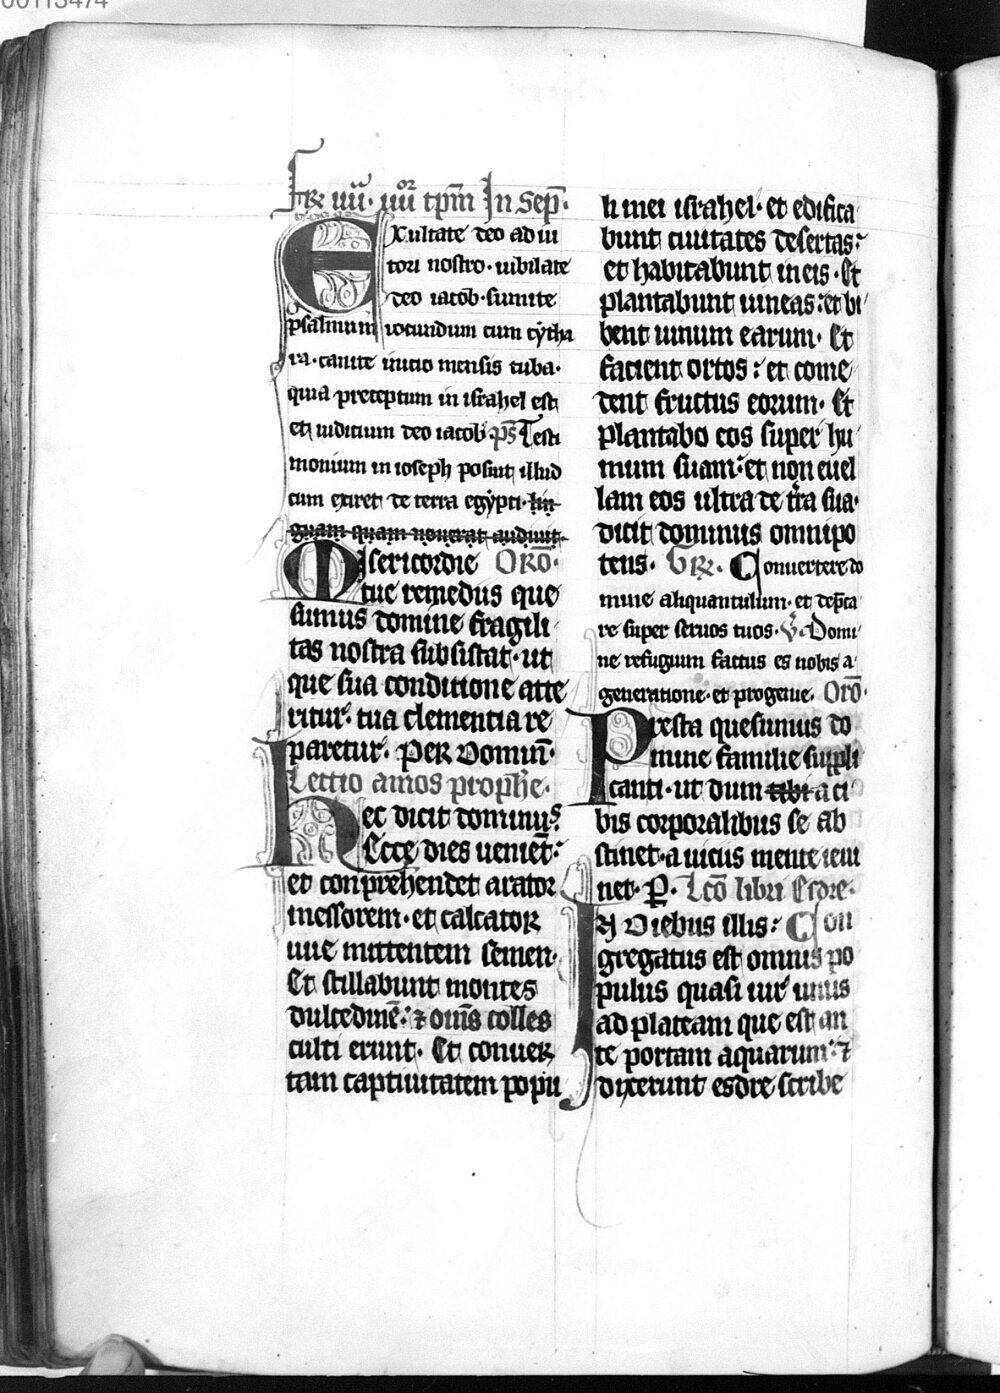 00113474
Fr̄ iiii· iiii^or tp̄m In Sep̄·
EXultate deo adiu
tori nostro· iubilate
deo iacob· sumite
psalmum iocundum cum cytha
ra· canite inicio mensis tuba·
quia preceptum in israhel est
et iuditium deo iacob p̄s Testi
monium in ioseph posuit illud
cum exiret de terra egypti· lin
guam quam nouerat audiuit·
Misericordie Orō·
tue remediis que
sumus domine fragili
tas nostra subsistat· ut
que sua conditione atte
ritur· tua clementia re
paretur· per Dominū·
Lectio amos prophe·
Hec dicit dominus·
Ecce dies uenient:
et conprehendet arator
messorem· et calcator
uue mittentem semen·
Et stillabunt montes
dulcedinē: ⁊ om̄s colles
culti erunt· Et conuer
tam captiuitatem popu
li mei israhel· et edifica
bunt ciuitates desertas:
et habitabunt in eis· Et
plantabunt uineas: et bi
bent uinum earum· Et
facient ortos: et come
dent fructus eorum· Et
plantabo eos super hu
mum suam: et non euel
lam eos ultra de tr̄a sua·
dicit dominus omnipo
tens· Gr̄· Conuertere do
mine aliquantulum· et dep̄ca
re super seruos tuos· V̄· Domi
ne refugium factus es nobis a
generatione· et progenie· Orō·
Presta quesumus do
mine familie suppli
canti· ut dum tibi a ci
bis corporalibus se ab
stinet· a uiciis mente ieiu
net· P̲· Lcō libri Esdre·
IN Diebus illis: Con
gregatus est omnis po
pulus quasi uir unus
ad plateam que est an
te portam aquarum: ⁊
dixerunt esdre scribe